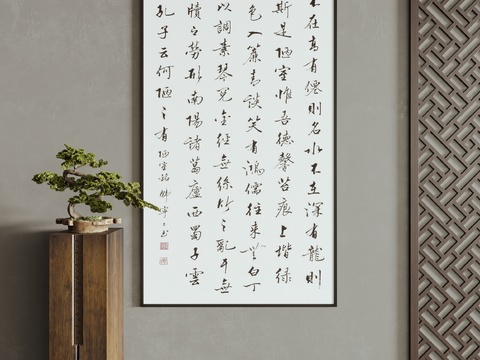 不在高有僊則名水不在深有龍則
斯是陋室惟吾德馨苔痕上堦綠
色入簾青談笑有鴻儒往來無白丁
以調素琴閱金經無絲竹之亂耳無
牘之勞形南陽諸葛廬西蜀子雲
孔子云何陋之有 陋室銘